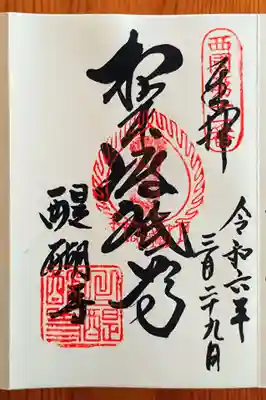 西国第十一番
奉拝
令和六年
三月二十九日
根本准胝尊
醍醐寺